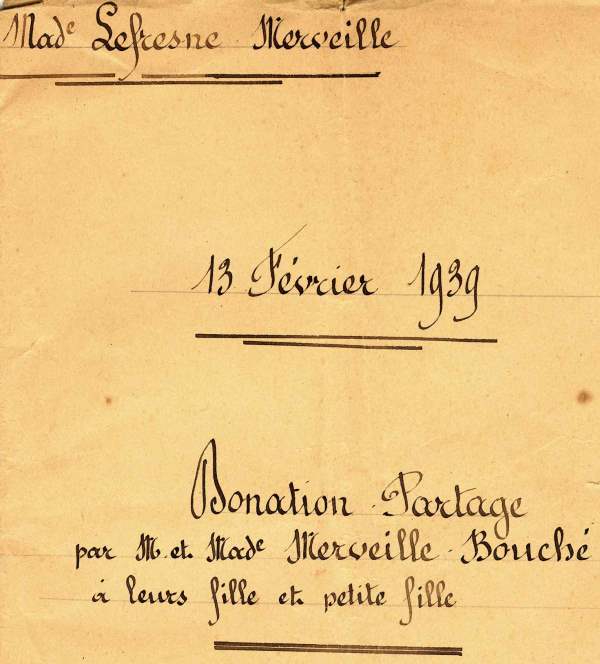 Made Lefresne Merveille
13 Février 1939
Donation Partage
par M. et Made Merveille - Bouché
à leurs fille et petite fille